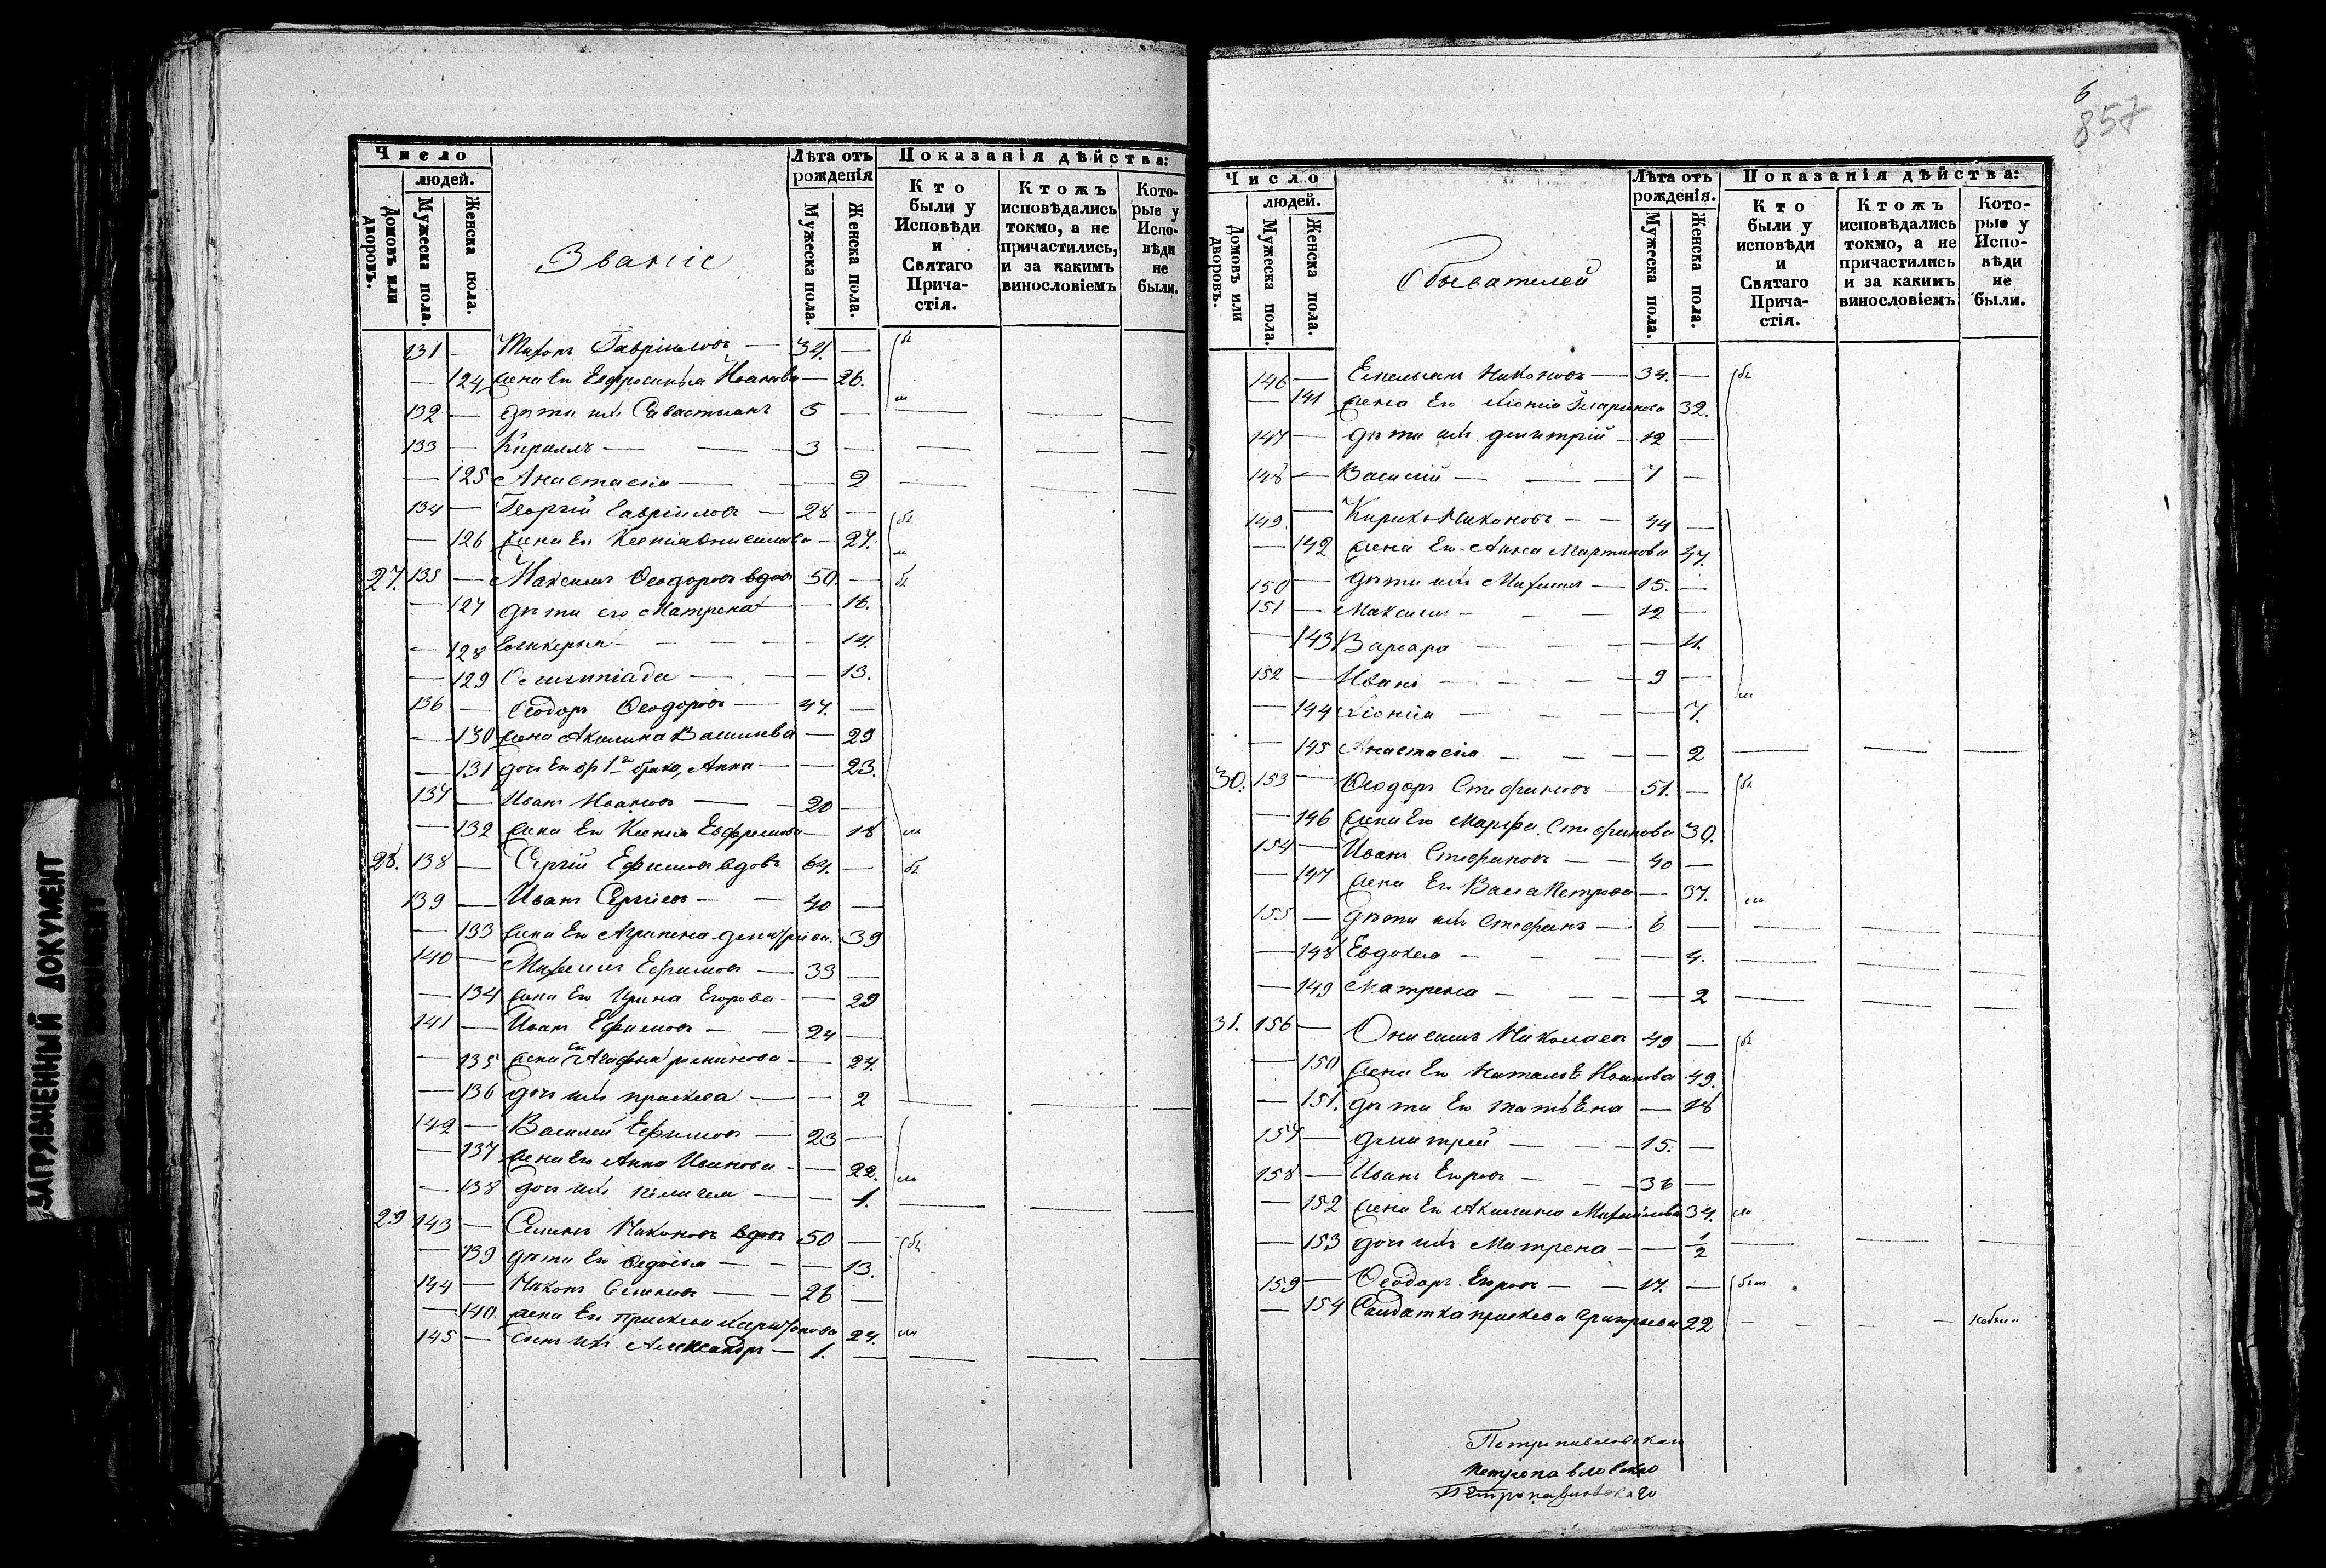 6
857
Число
людей.
Домовъ или дворовъ.
Мужеска пола.
Женска пола.
Званіе
Лѣта отъ рожденія
Мужеска пола.
Женска пола.
Показанія дѣйства:
Кто были у Исповѣди и Святаго Прича-стія.
Ктожъ исповѣдались токмо, а не причастились, и за какимъ винословіемъ
Кото-рые у Испо-вѣди не были.
131 — Тихонъ Гавріиловъ — 34. —
— 124 жена Ев Евфросинья Иванова — 26.
132 — дѣти ихъ Савастьянъ 5 —
133 — Кириллъ — 3 —
— 125 Анастасія — 2
134 — Георгій Гавріиловъ — 28 —
— 126 жена Ев Ксенія Онисимова — 27.
27. 135 — Максимъ Ѳеодоровъ вдовъ 50. —
— 127 дѣти его Матрена — 16.
— 128 Гликерья — 14.
— 129 Олимпіада — 13.
136 — Ѳеодоръ Ѳеодоровъ — 47. —
— 130 жена Акилина Васильева — 29
— 131 дочь Ев от 1го брака, Анна — 23.
137 — Иванъ Ивановъ — 20 —
— 132 жена Ев Ксенія Евфремова — 18
28. 138 — Сергій Ефимовъ вдовъ 64. —
139 — Иванъ Сергіевъ — 40 —
— 133 жена Ев Агрипена Дмитріева. 39
140 — Михаилъ Ефимовъ — 33 —
— 134 жена Ев Ирина Егорова — 29
141 — Иванъ Ефимовъ — 24 —
— 135 жена Ев Агафья романова — 24.
— 136 дочь ихъ праскева — 2
142 — Василий Ефимовъ — 23 —
— 137 жена Ев Анна Иванова — 22.
— 138 дочь ихъ пелагея — 1.
29 143 — Семенъ Никоновъ вдовъ 50 —
— 139 дѣти Ев Ѳедосья — 13.
144 — Никонъ Семеновъ — 26 —
— 140. жена Ев праскева Харитонова 24.
145 — сынъ ихъ Александръ — 1. —
Число
людей.
Домовъ или дворовъ.
Мужеска пола.
Женска пола.
Обывателей
Лѣта отъ рожденія.
Мужеска пола.
Женска пола.
Показанія дѣйства:
Кто были у исповѣди и Святаго Прича-стія.
Ктожъ исповѣдались токмо, а не причастились и за какимъ винословіемъ
Кото-рые у Испо-вѣди не были.
146 — Емельянъ Никоновъ — 34. —
— 141 жена Ев Хіонія 32.
147 — дѣти ихъ дмитрій — 12 —
148 — Василій — 7 —
149. — Кирикъ Никоновъ — 44 —
— 142 жена Ев Анна Мартинова 47.
150 — дѣти ихъ Михаилъ — 15. —
151 — Максимъ — 12 —
— 143 Варвара — 11.
152 — Иванъ — 9 —
— 144 Хіонія — 7.
— 145 Анастасія — 2
30. 153 — Ѳеодоръ Стефановъ — 51. —
— 146 жена Ев Марфа Стефанова 30.
154 — Иванъ Стефановъ — 40 —
— 147 жена Ев Васса Петрова — 37.
155 — дѣти ихъ Стефанъ — 6 —
— 148 Евдокея — 4.
— 149 Матрена — 2
31. 156 — Онисимъ Николаевъ 49 —
— 150 жена Ев Наталья Иванова 49.
— 151. дѣти Ев татьѣна — 18
157 — дмитрей — 15. —
158 — Иванъ Егоровъ — 36 —
— 152 жена Ев Акилина Михайлова 34.
— 153 дочь ихъ Матрена — 1/2
159 — Ѳеодоръ Егоровъ — 17. —
— 154 Салдатка праскева григорьева 22 — небыла
Петропавловскаго
петропавловского
Петропавловскаго
ЗАГРЯЗНЕННЫЙ ДОКУМЕНТ